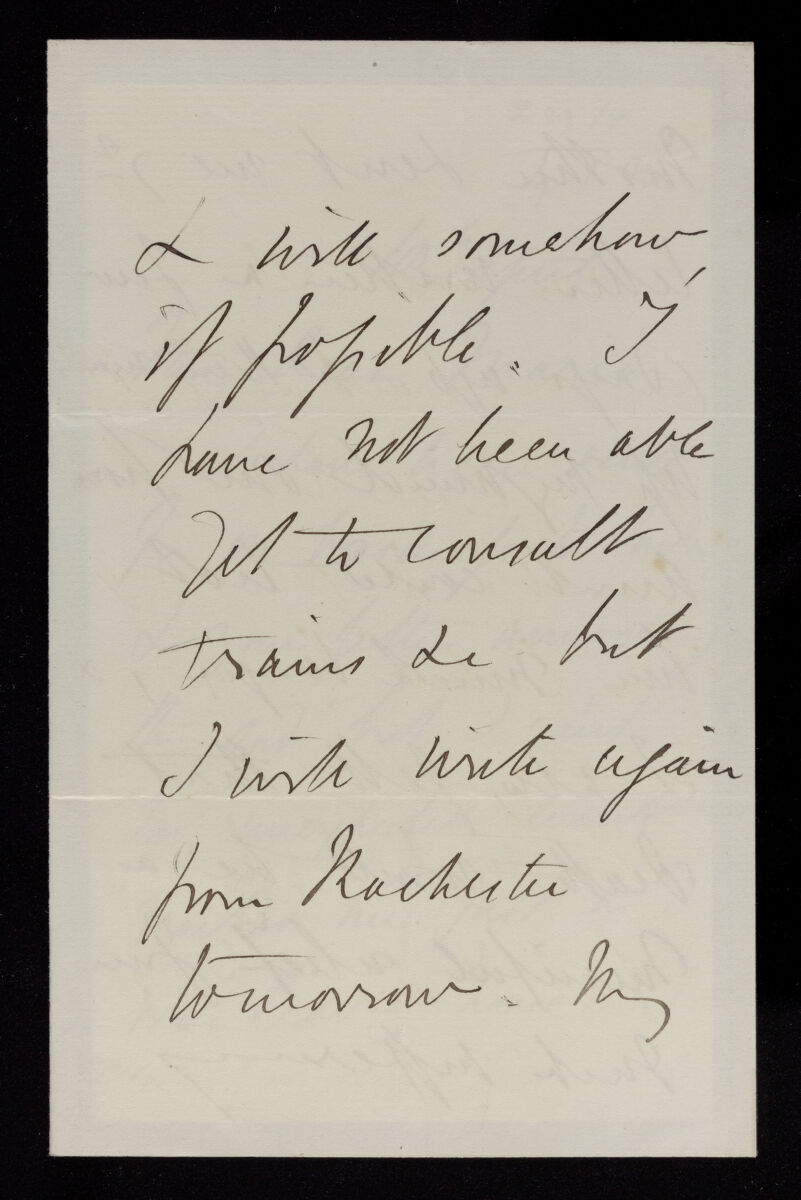 & will somehow,
if possible. I
have not been able
yet to consult
trains &c but
I will write again
from Rochester
tomorrow. My